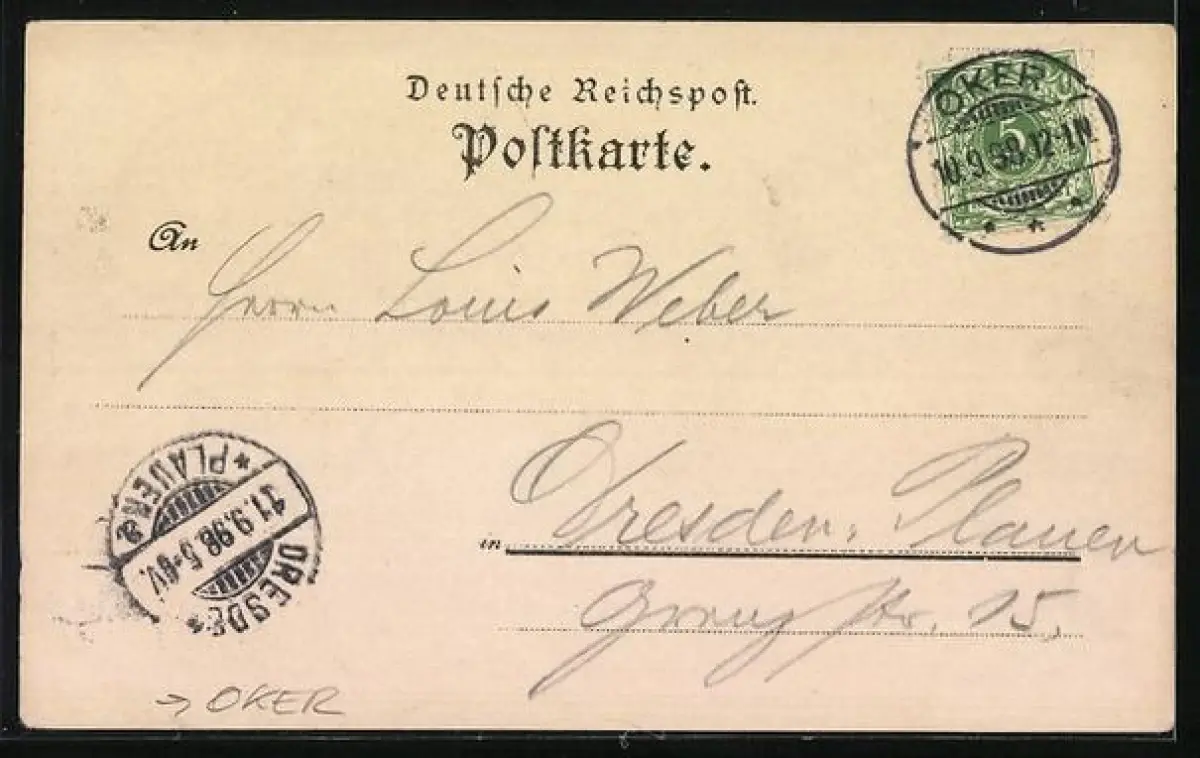 Deutsche Reichspost.
Postkarte.
OKER
5
10.9.98.12-1N.
* * *
An
Herrn Louis Weber
in Dresden. Plauen
Grenz str. 15.
* PLAUEN
11.9.98.5-6V.
DRESDEN
→ OKER